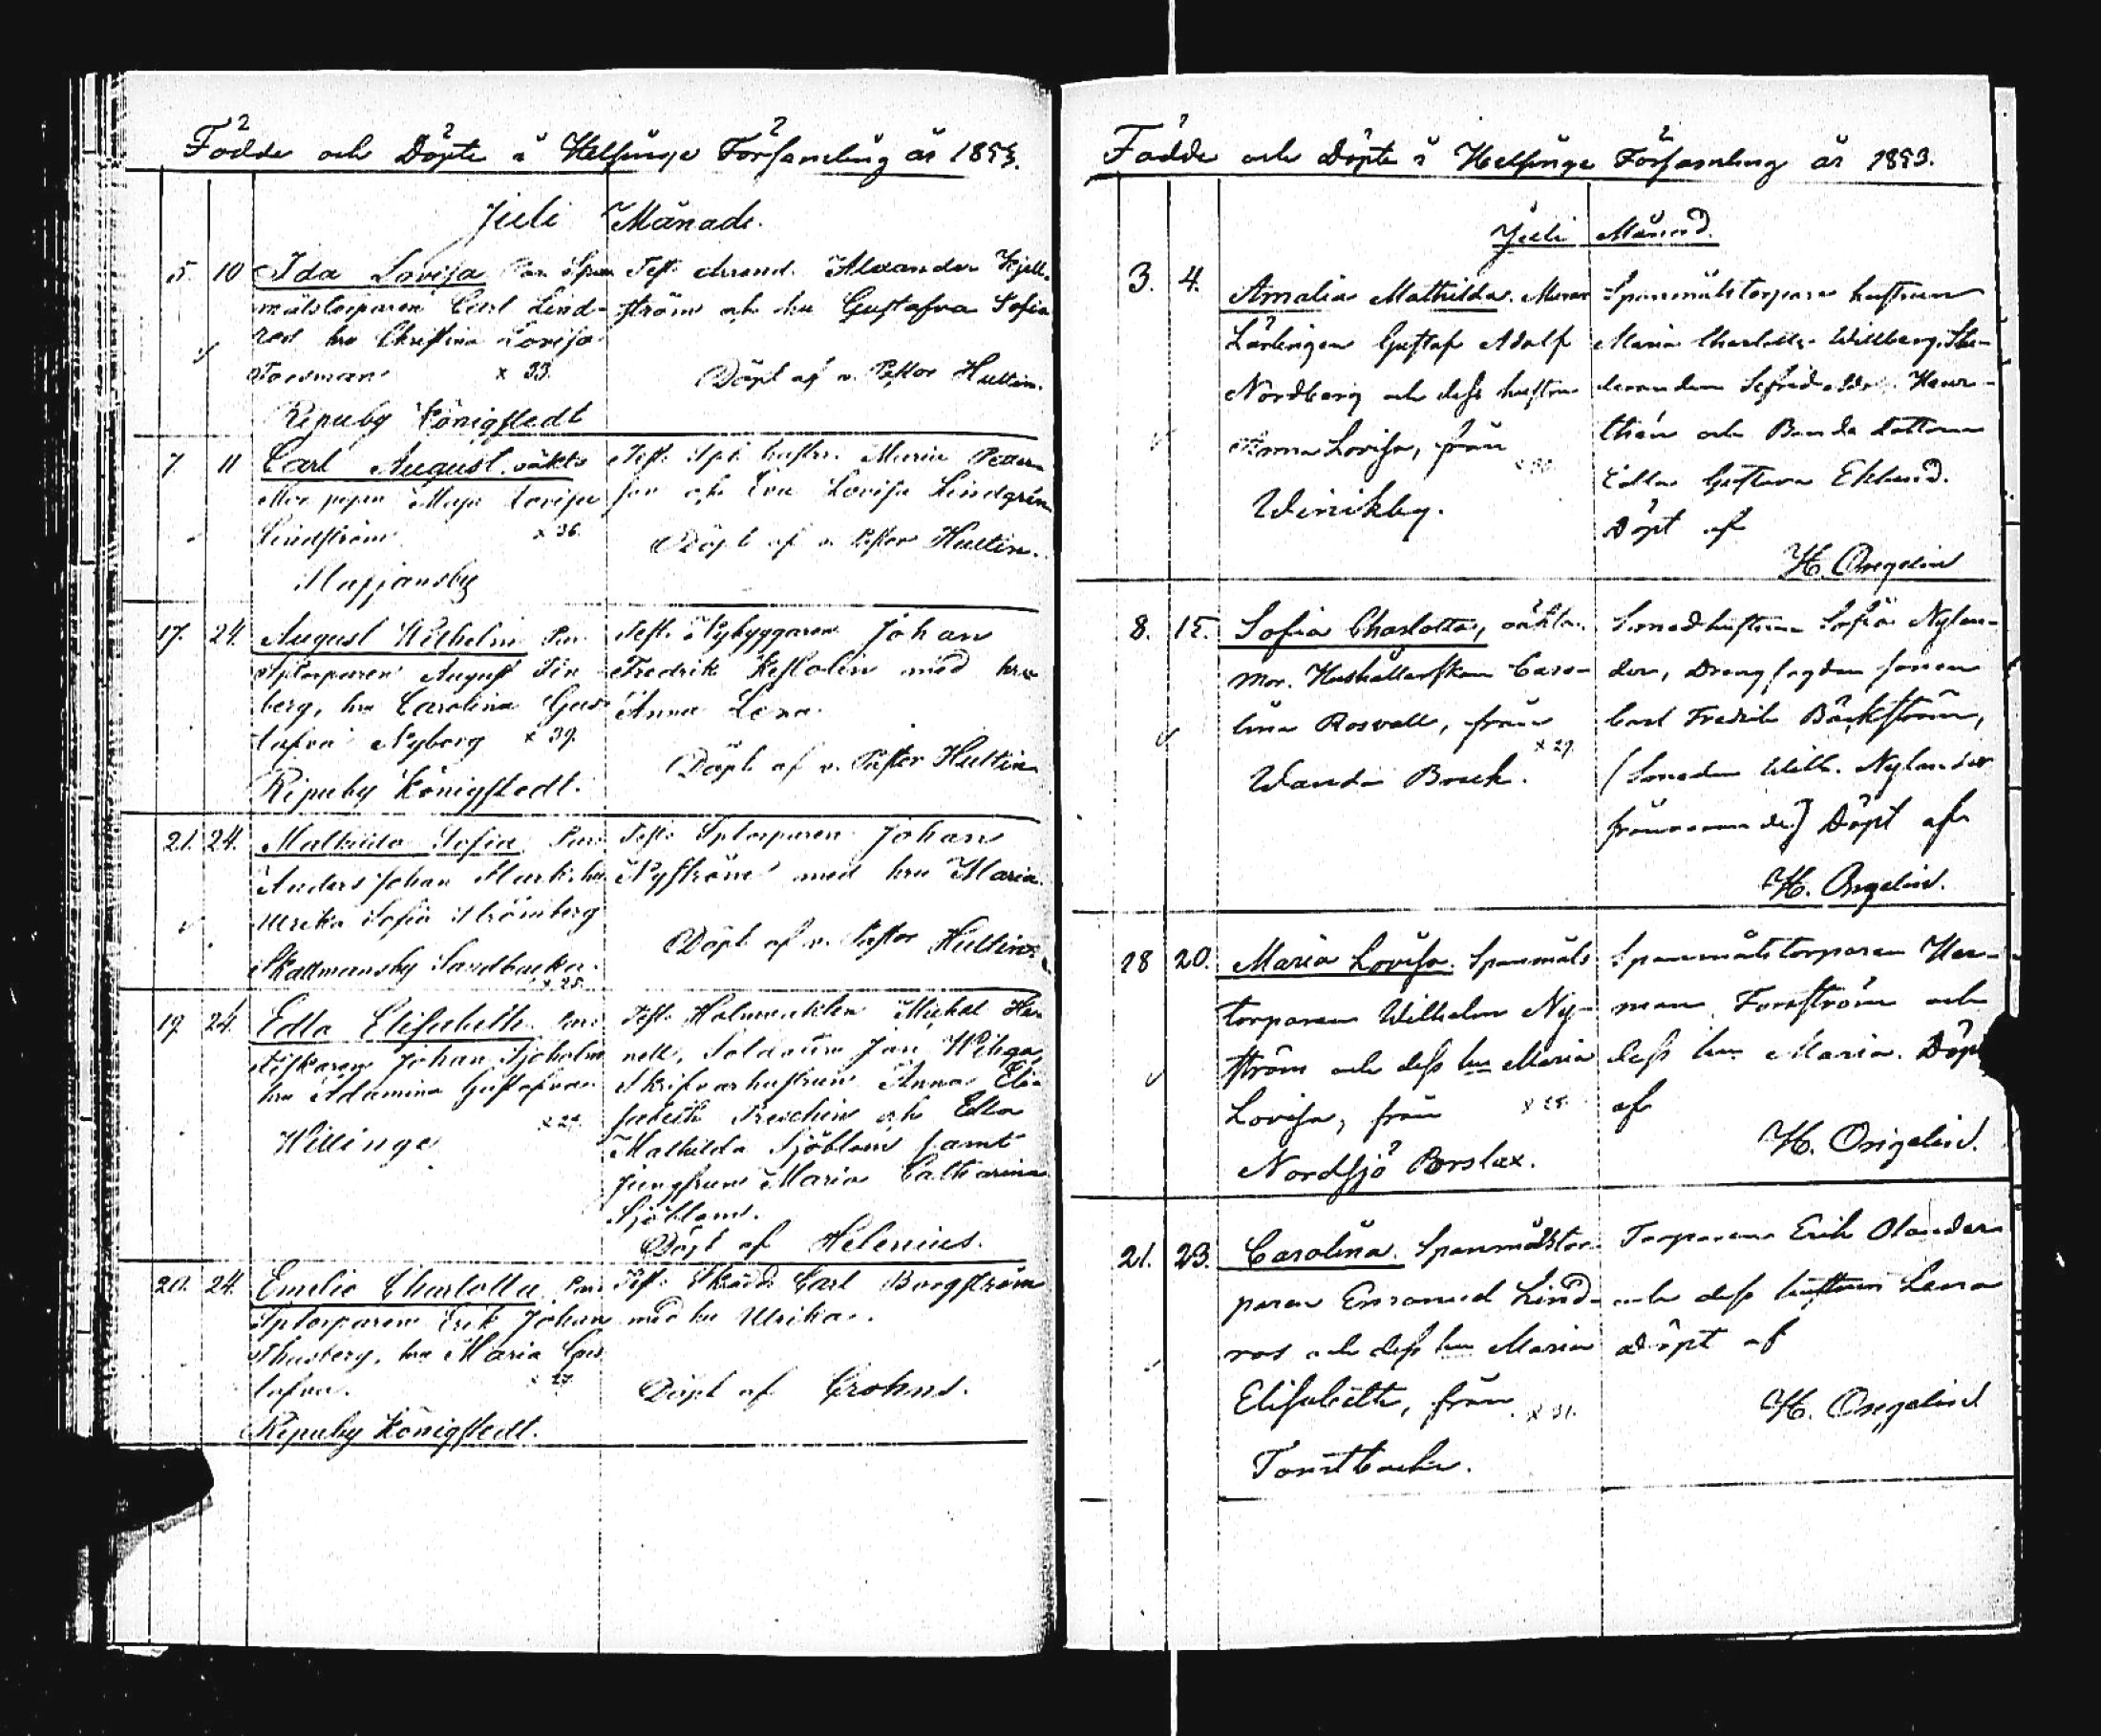 Födde och Döpte i Helsinge Församling år 1853.
Juli Månad.
5. 10 Ida Lovisa Par. Span
målstorparen Carl Lind-
ros hu Christina Lovisa
Forsman x 33.
Ripuby Königstedt
Test. Alexander Kjell-
ström och hu Gustafva Sofia
Döpt af v. Pastor Hultin.
7. 11 Carl August. oäkta
Mor pigan Maja Lovisa
Lindström x 36.
Mårtensby
Test. hustru Maria Petters
son och Eva Lovisa Lindgren
Döpt af v. Pastor Hultin.
17. 24. August Wilhelm Par.
Sptorparen August Fin
berg, hu Carolina Gus-
tafva Nyborg x 39.
Ripuby Königstedt.
Test. Nybyggaren Johan
Fredrik med hu
Anna Lena.
Döpt af v. Pastor Hultin
21. 24. Mathilda Sofia. Par.
Anders Johan hu
Ulrika Sofia Strömberg
Skattmansby Sandbacka.
x 25.
Test. Sptorparen Johan
Nyström med hu Maria.
Döpt af v. Pastor Hultin.
19. 24. Edla Elisabeth. Par.
Johan Sjöholm
hu Adamina Gustafva
x 27.
Willinge
Test. Michel
Soldaten
Skrifvarhustrun Anna Eli-
sabeth och Edla
Mathilda Sjöblom samt
jungfrun Maria Catharina
Sjöblom.
Döpt af Helenius.
20. 24. Emilie Charlotta Par.
Sptorparen Erik Johan
Thusberg, hu Maria Gus
tafva. x 27
Ripuby Königstedt.
Test. Skrädd. Carl Borgström
med hu Ulrika.
Döpt af Crohns.
Födde och Döpte i Helsinge Församling år 1853.
Juli Månad.
3. 4. Amalia Mathilda. Murar
Lärlingen Gustaf Adolf
Nordberg och dess hustru
Anna Lovisa, från
Winikby.
Spanmålstorpare hustrun
Maria Charlotta Willberg, Stu-
deranden
och Bonde dottern
Edla Gustava Eklund.
Döpt af
H. Ongelin
8. 15. Sofia Charlotta, oäkta.
Mor. Hushållerskan Caro-
lina Rosvall, från
x 29.
Wanda Bruk.
Smedhustrun Sofia Nylan-
der, Drengfogden sonen
Carl Fredrik Bäckström,
(Smeden Wilh. Nylander
frånvarande) Döpt af
H. Ongelin.
18 20. Maria Lovisa. Spanmåls
torparen Wilhelm Ny-
ström och dess hu Maria
Lovisa, från x 25.
Nordsjö Borslax.
Spanmålstorparen Her-
man Forsström och
dess hu Maria. Döpt
af
H. Ongelin.
21. 23. Carolina. Spanmålstor-
paren Emanuel Lind-
ros och dess hu Maria
Elisabeth, från x 31.
Tomtbacka.
Torparen Erik Olander
och dess hustrun Lena
Döpt af
H. Ongelin